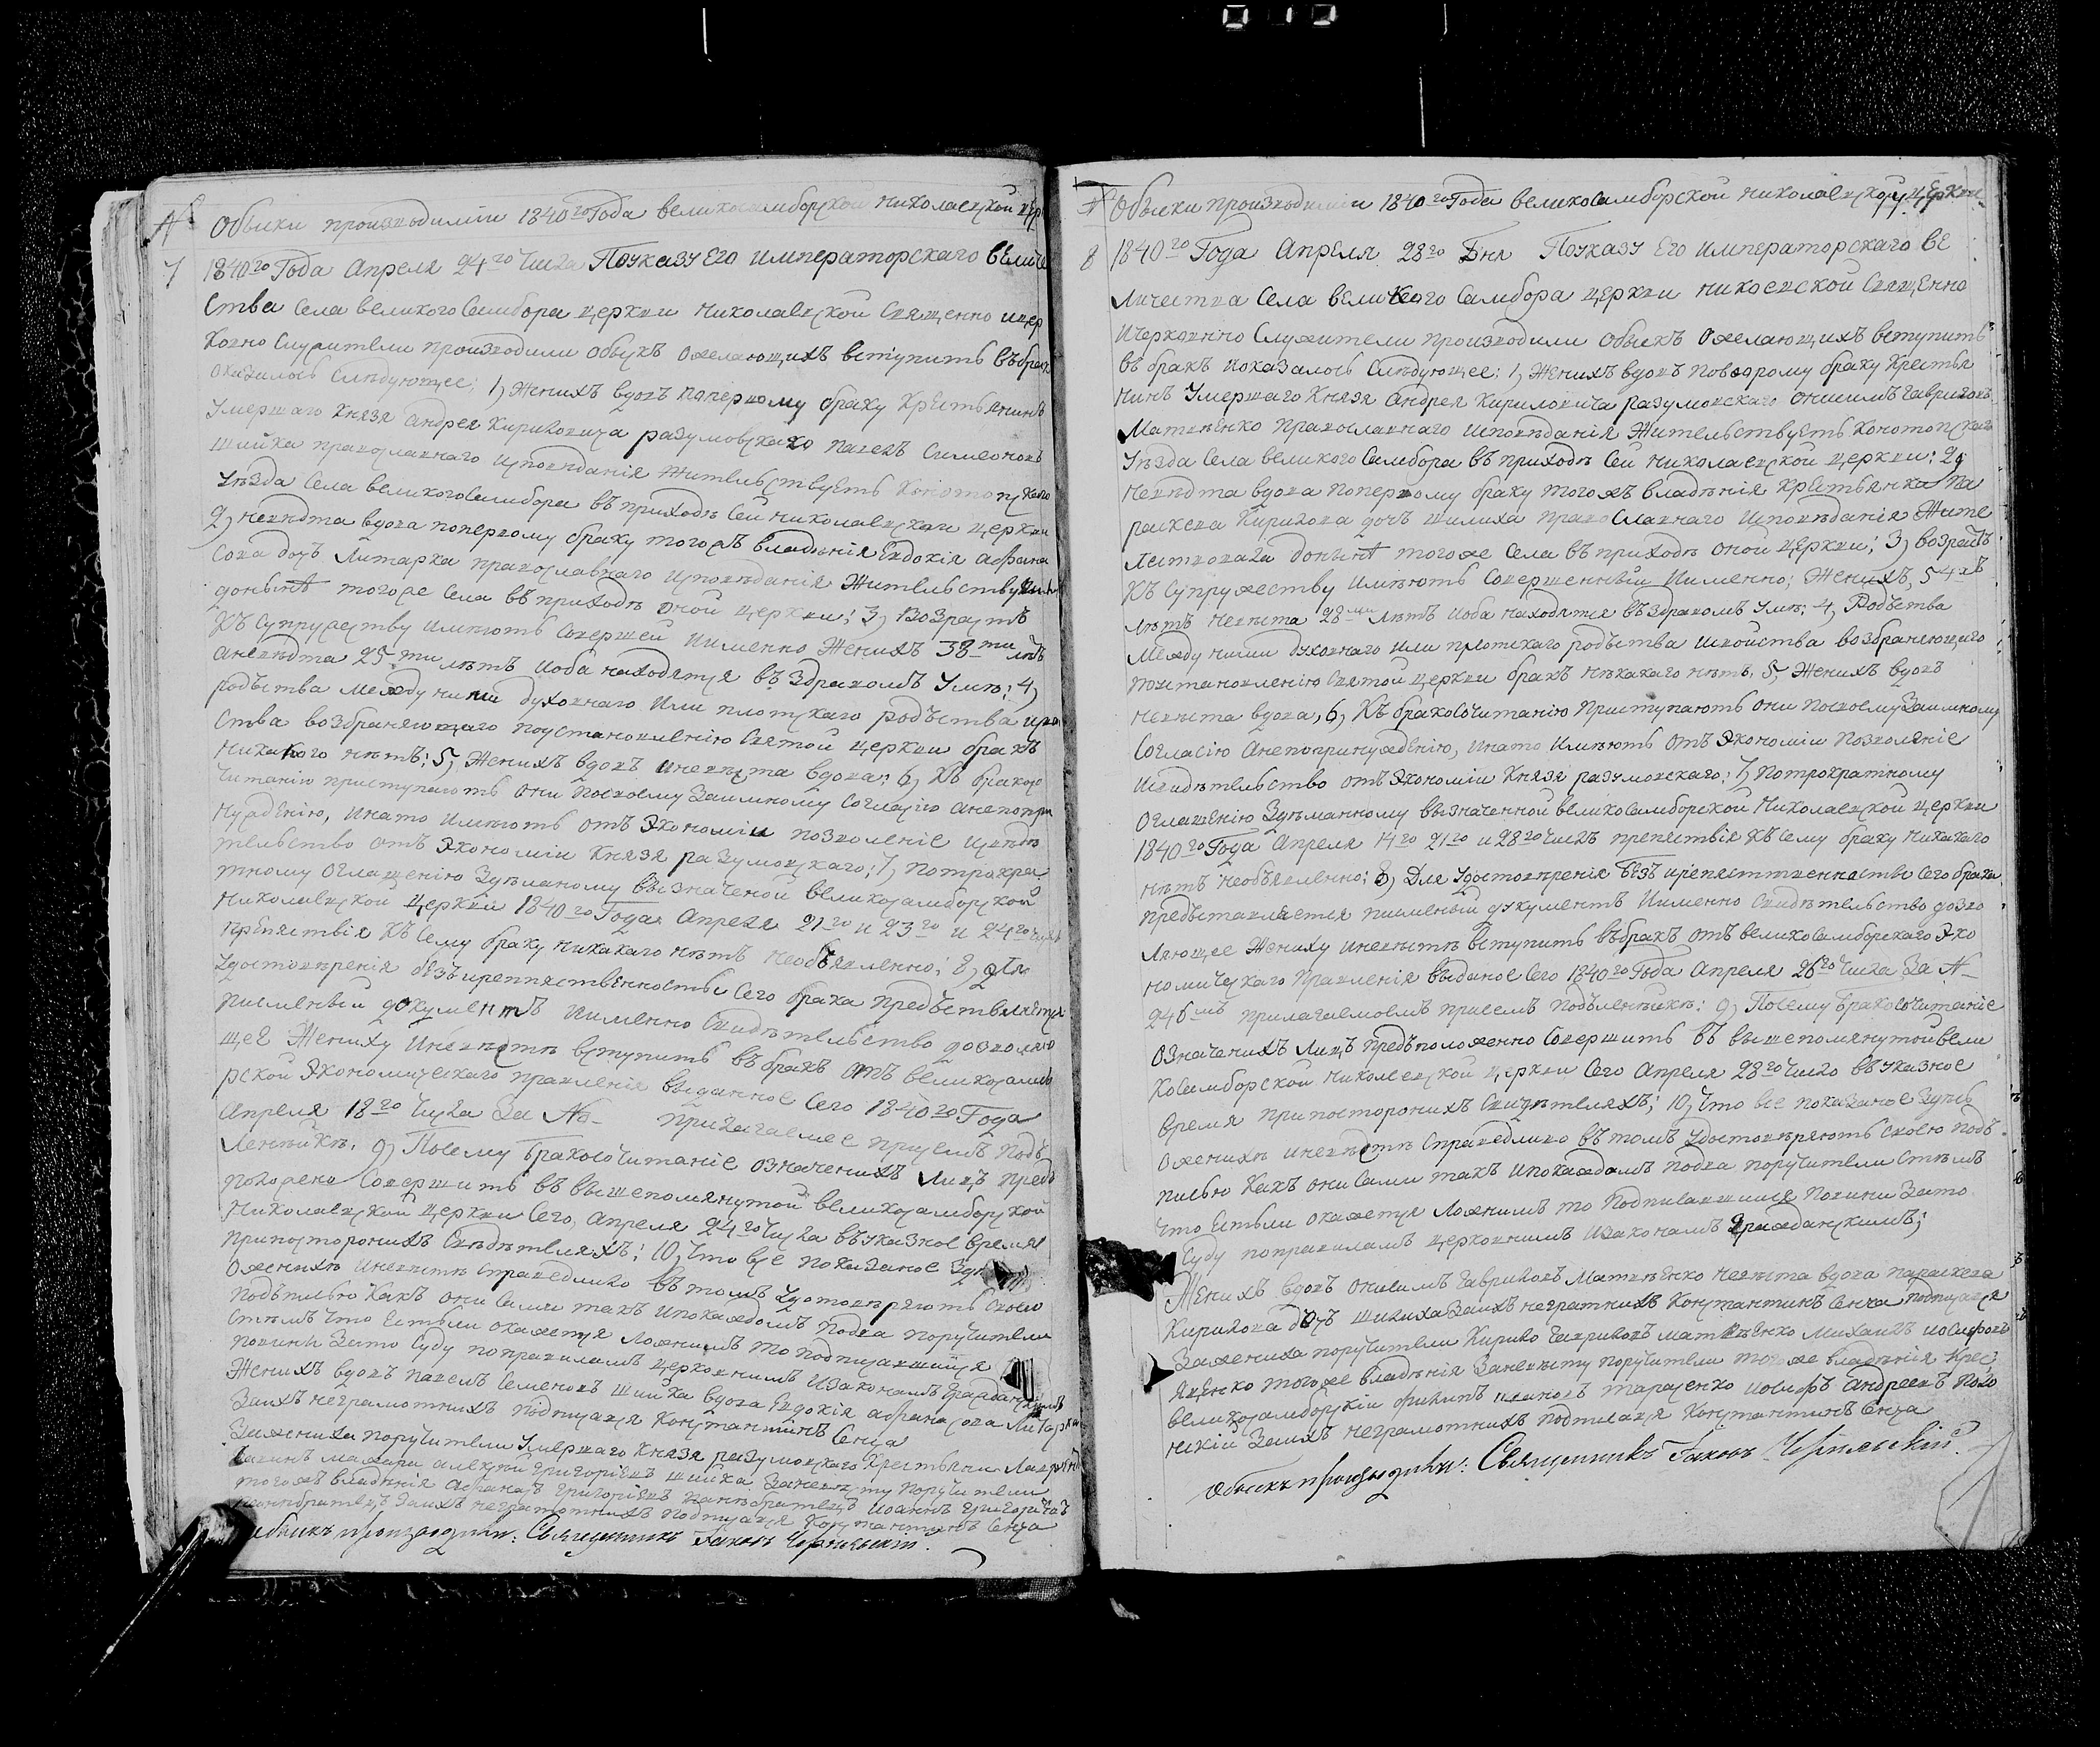 № Обыски производимiи 1840го Года великосамборской николаевской цер
7 1840го Года Апреля 24го Числа По указу Его императорскаго величе
ства Села великого Самбора церкви Николаевской Священно ицер
ковно Служители производили обыскъ Ожелающихъ вступить въ бракъ
оказалось Слѣдующее: 1, Женихъ вдовъ поперво­му браку Крестьянинъ
Умершаго Князя Андрея Кириловича разумовскаго павелъ Симеоновъ
шийка православнаго исповѣданiя жительствуетъ Конотопскаго
Уѣзда Села великого Самбора въ приходѣ Сей николаевской церкви
2, невѣста вдова поперво­му браку тогожъ владѣнiя Евдокiя афана
сова дочъ Литарка православнаго исповѣданiя жительствуетъ
донынѣ тогоже Села въ приходѣ оной церкви; 3, возрастъ
Къ Супружеству имѣютъ Совершен иименно Женихъ 38ми лѣтъ
аневѣста 25ти лѣтъ иоба находятся въ здравомъ Умѣ; 4,
родъства между ними духовнаго или плотскаго родъства исвой
ства возбраняющаго поустановленiю Святой церкви бракъ
никакого нѣтъ; 5, Женихъ вдовъ иневѣста вдова; 6, Къ бракосо
читанiю приступаютъ они посвоему Заимному Согласiю анепопри
нужденiю, инато имѣютъ отъ Экономiи позволенiе исвидѣ
тельство отъ Экономiи Князя разумовскаго; 7, Потрократ
тному Оглашенiю Здѣланому въ означеной великосамборской
Николаевской церкви 1840го Года Апреля 21го и 23го и 24го числъ
препятствiя Къ Сему браку никакаго нѣтъ необъявленно; 8, Для
удостовѣренiя безъ препятственности Сего брака предъставляется
писменный документъ иименно Свидѣтельство дозволяю
щее Жениху иневѣстѣ вступить въ бракъ отъ великосамбо
рской Экономическаго правленiя выданное Сего 1840го Года
Апреля 18го Числа за №- прилагаемое присемъ подъ
ленѣйкѣ. 9, Посему бракосочитанiе означенихъ Лицъ предъ
положено Совершить въ вышепомянутой великосамборской
Николаевской церкви Сего, Апреля 24го Числа въ указное время
припосторонихъ Свѣдѣтеляхъ; 10, Что все показаное Здѣ
Оженихѣ иневѣстѣ справедливо въ томъ удостовѣряютъ своею
подъписью Какъ они Сами такъ ипокаждомъ подва поручители
Стѣмъ что Естьли окажется Ложнимъ то подписавшийся
повини Зато Суду поправиламъ церковнимъ изаконамъ Гражданскимъ
Женихъ вдовъ павелъ Семеновъ шийка вдова Евдокiя афанасова Литарка
Заихъ неграмотнихъ подписался Константинъ Сенча
Зажениха поручители Умершаго Князя разумовскаго Крестьяни
алексѣй григорiевъ шийка Заневѣсту поручители
тогожъ владѣнiя афанасъ григорiевъ иоаннъ григорiевъ
Заихъ неграмотнихъ подписался Константинъ Сенча
обыскъ производилъ: Священникъ Iаковъ Чернявскiй.
№ Обыски производимiи 1840го Года великосамборской николаевской церкви
8 1840го Года Апреля 28го Дня По указу Его императорскаго ве
личества Села великого Самбора церкви никоевской Священно
ицерковнiю Служители производили обыскъ Ожелающихъ вступить
въ бракъ ноказалось Слѣдующее: 1, Женихъ вдовъ повторому браку Крестья
нинъ Умершаго Князя Андрея Кириловича разумовскаго онисимъ гавриловъ
Матвѣенко православнаго исповѣданiя жительствуетъ Конотопскаго
Уѣзда Села великого Самбора въ приходѣ Сей николаевской церкви; 2,
невѣста вдова поперво­му браку тогожъ владѣнiя Крестьянка Па
раскева Кирилова дочъ шилиха православнаго исповѣданiя Жите
лествовала донынѣ тогоже Села въ приходѣ оной церкви; 3, возрастъ
Къ Супружеству имѣютъ Совершенный Иименно; Женихъ, 54хъ
лѣтъ невѣста 28ми лѣтъ иоба находятся въ здравомъ Умѣ; 4, Родъства
между ними духовнаго или плотскаго родъства исвойства возбраняющаго
поустановленiю Святой церкви бракъ нѣкакаго нѣтъ, 5, Женихъ вдовъ
невѣста вдова, 6, Къ бракосочитанiю приступаютъ они посвоему Заимному
Согласiю анепопринужденiю, инато имѣютъ отъ Экономiи позволянiе
исвидѣтельство отъ Экономiи Князя разумовскаго; 7, Потрократному
оглашенiю Здѣланному въ означенной великосамборской Николаевской церкви
1840го Года Апреля 14го 21го и 28го числъ препятствiя къ сему браку никакаго
нѣтъ необъявленно; 8, Для Удостовѣренiя безъ препятственности сего брака
предъставляется писменый документъ Иименно Свидѣтельство дозво
ляющее Жениху иневѣстѣ вступить въ бракъ отъ великосамборскаго Эко
номическаго правленiя выданое Сего 1840го Года Апреля 26го Числа За №-
246мъ прилагаемоемъ присемъ подъленѣйкѣ; 9, Посему бракосочитанiе
означенихъ Лицъ предъположенно Совершить въ вышепомянутой вели
косамборской николевской церкви Сего Апреля 28го Числа въ указное
время припосторонихъ Свидѣтеляхъ; 10, Что все показаное Здѣсь
Оженихѣ иневѣстѣ справедливо въ томъ удостовѣряютъ своею подъ
писью Какъ они Сами такъ ипокаждомъ подва поручители Стѣмъ
что Естьли окажется Ложнимъ то подписавшиися повини Зато
Суду поправиламъ церковнимъ изаконамъ Гражданскимъ;
Женихъ вдовъ онисимъ гавриловъ Матвѣенко невѣста вдова параскева
Кирилова дочъ шилиха Заихъ неграмтнихъ Константинъ Сенча подписался
Зажениха поручители Кирило гавриловъ матвѣенко Михаилъ иосифовъ
яценко тогоже владѣнiя Заневѣсту поручители тогоже владѣнiя Крес:
великосамборскiи филипъ ивановъ тарасенко иосифъ андреевъ
Заихъ неграмотнихъ подписался Константинъ Сенча
обыскъ производилъ: Священникъ Iаковъ Чернявскiй.